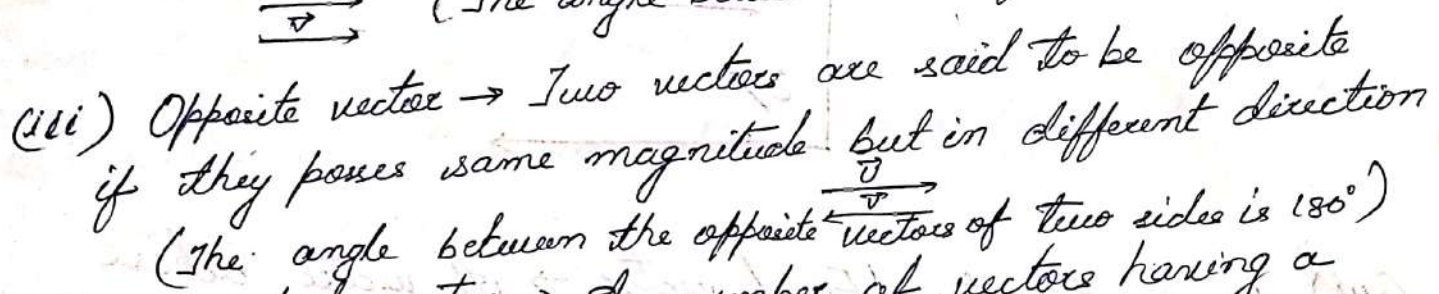 v⃗ (The angle
(iii) Opposite vector → Two vectors are said to be opposite
if they posses same magnitude but in different direction
U⃗
v⃗
(The angle between the opposite vectors of two sides is 180°)
of vectors having a